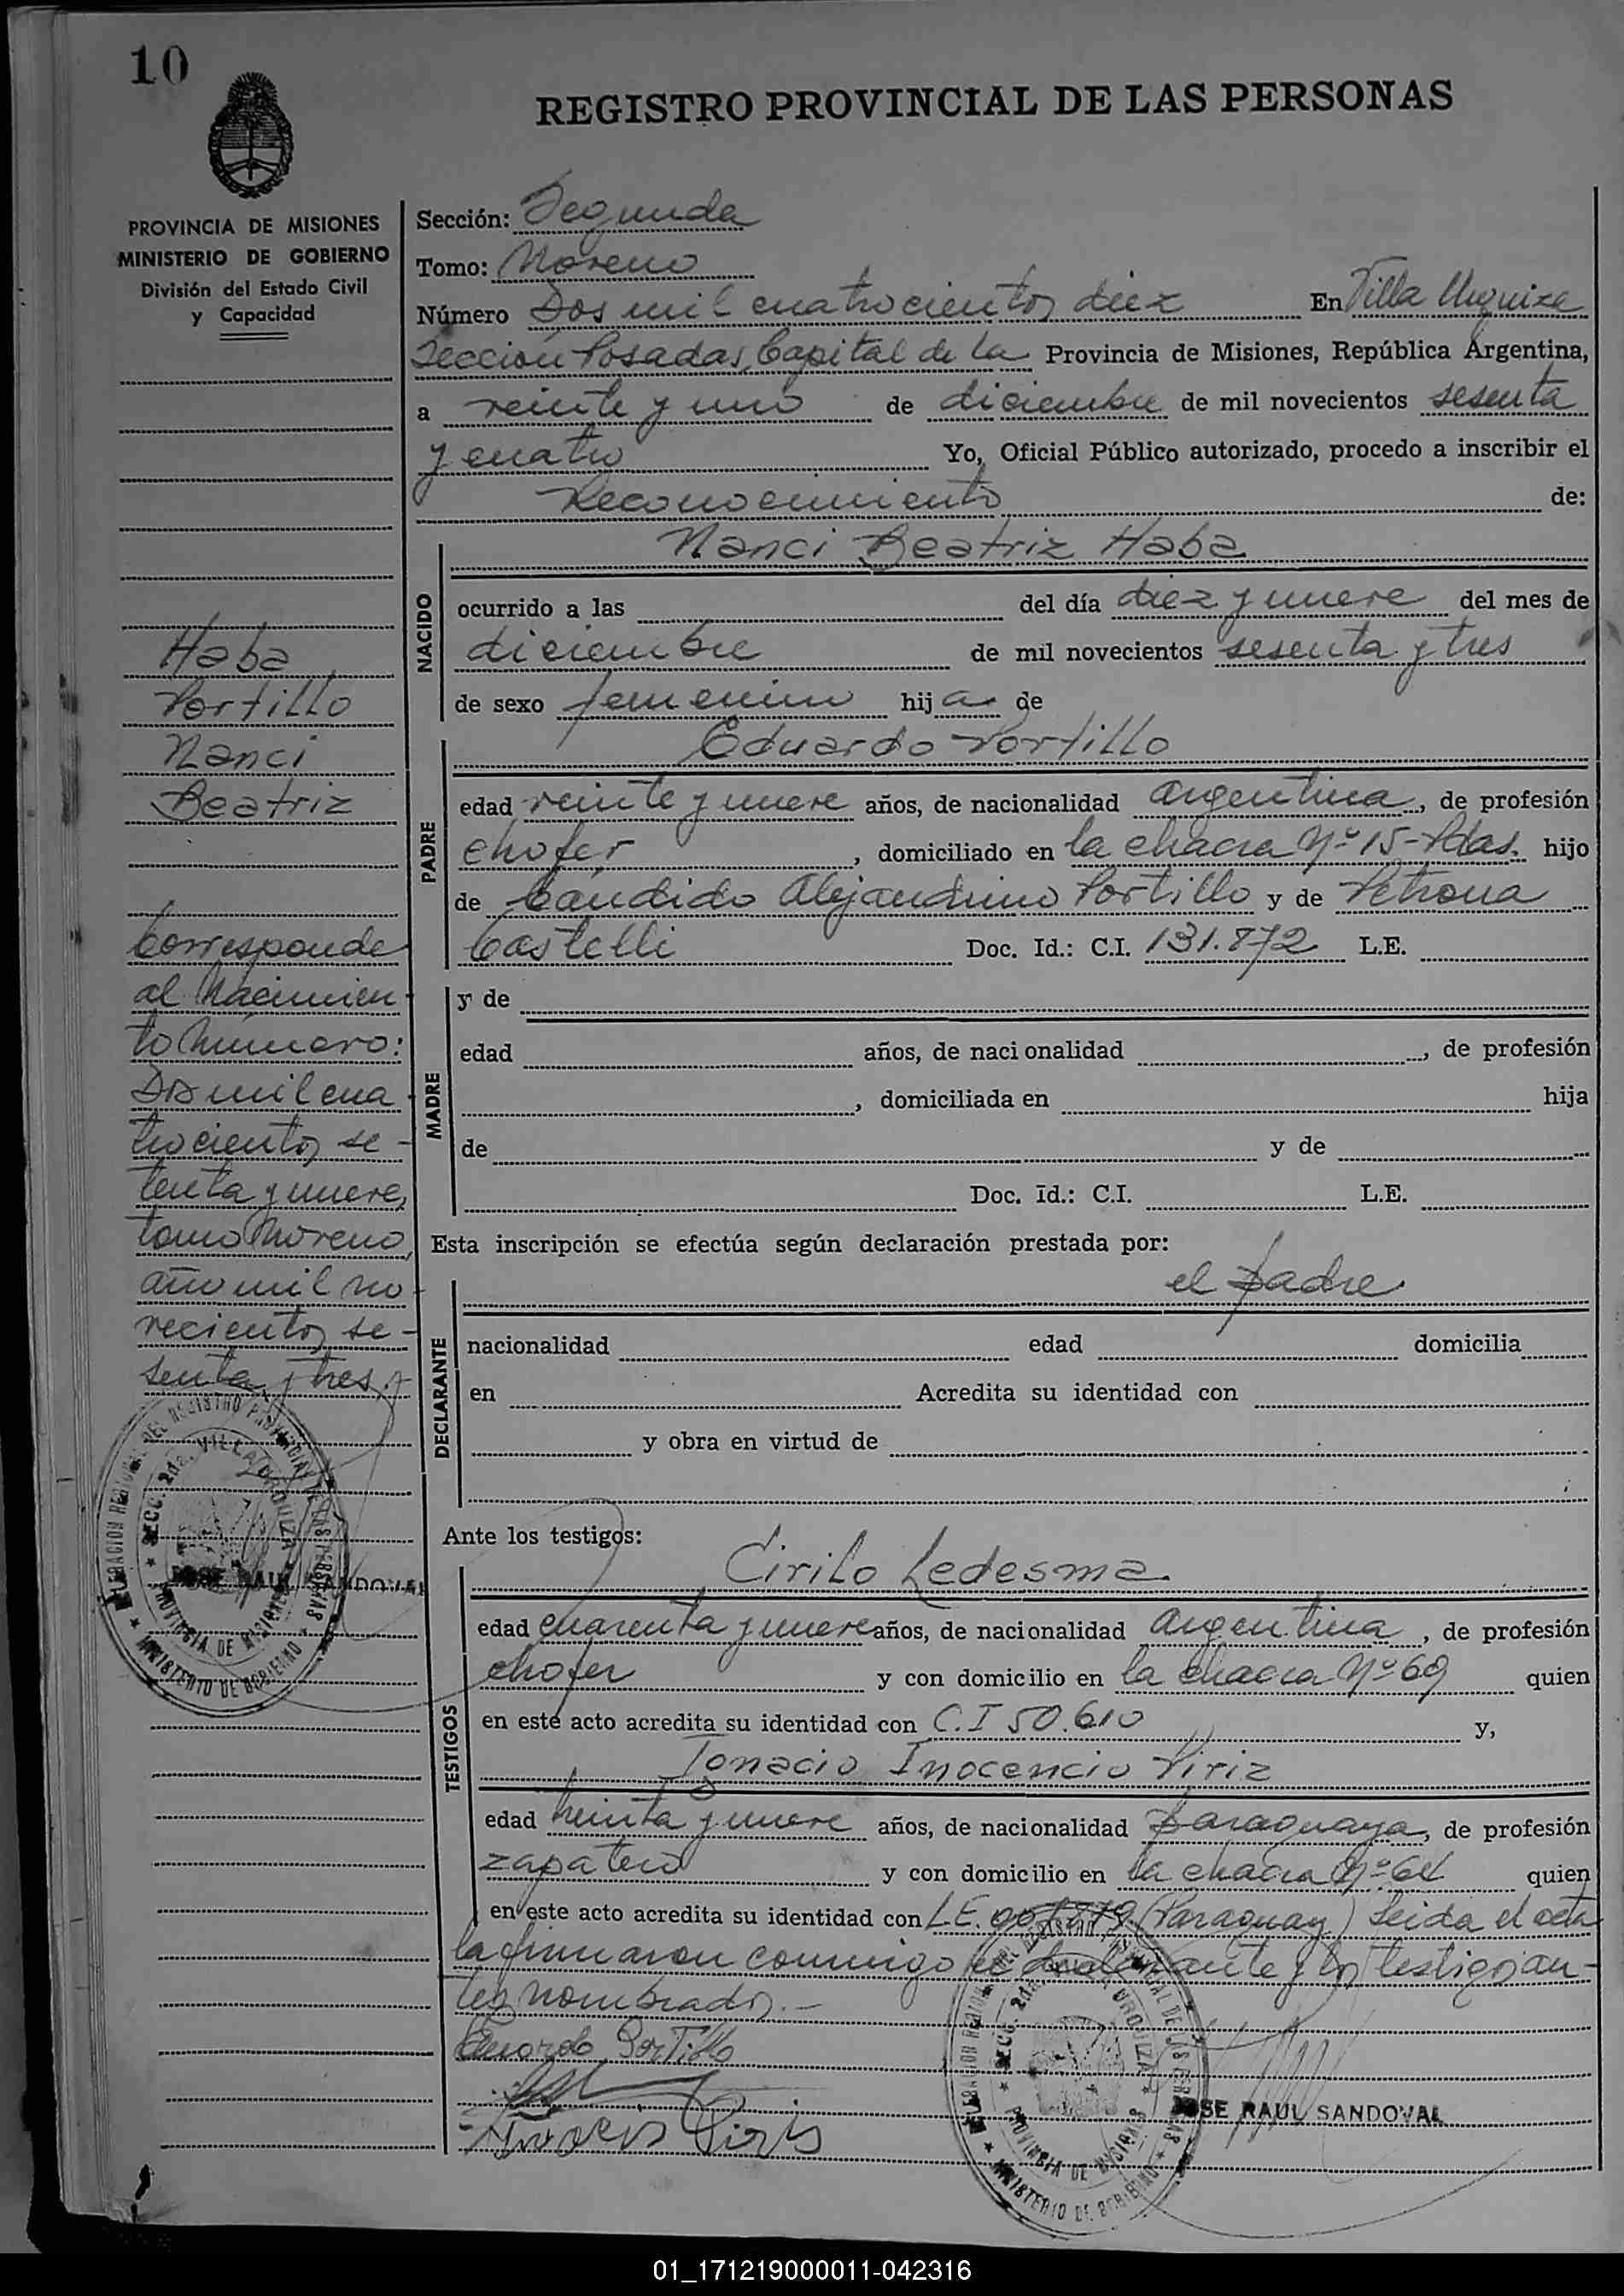 10
REGISTRO PROVINCIAL DE LAS PERSONAS
PROVINCIA DE MISIONES
MINISTERIO DE GOBIERNO
División del Estado Civil
y Capacidad
Haba
Portillo
Nanci
Beatriz
Corresponde
al Nacimien-
to Número:
Dos mil cua-
trocientos se-
tenta y nueve,
tomo Moreno,
año mil no-
vecientos se-
senta y tres.
JOSE RAUL SANDOVAL
Sección: Segunda
Tomo: Moreno
Número Dos mil cuatrocientos diez En Villa Urquiza
Sección Posadas, Capital de la Provincia de Misiones, República Argentina,
a veinte y uno de diciembre de mil novecientos sesenta
y cuatro Yo, Oficial Público autorizado, procedo a inscribir el
Reconocimiento de:
NACIDO
Nanci Beatriz Haba
ocurrido a las del día diez y nueve del mes de
diciembre de mil novecientos sesenta y tres
de sexo femenino hija de
PADRE
Eduardo Portillo
edad veinte y nueve años, de nacionalidad argentina, de profesión
chofer, domiciliado en la chacra Nº 15-Pdas. hijo
de Cándido Alejandrino Portillo y de Petrona
Castelli Doc. Id.: C.I. 131.872 L.E.
MADRE
y de
edad años, de naci onalidad , de profesión
, domiciliada en hija
de y de
Doc. Id.: C.I. L.E.
Esta inscripción se efectúa según declaración prestada por:
DECLARANTE
el padre
nacionalidad edad domicilia
en Acredita su identidad con
y obra en virtud de
Ante los testigos:
TESTIGOS
Cirilo Ledesma
edad cuarenta y nueve años, de nacionalidad argentina, de profesión
chofer y con domicilio en la chacra Nº 69 quien
en este acto acredita su identidad con C.I 50.610 y,
Ignacio Inocencio Piriz
edad treinta y nueve años, de nacionalidad paraguaya, de profesión
zapatero y con domicilio en la chacra Nº 64 quien
en este acto acredita su identidad con L.E. (Paraguay) Leida el acta
la firmaron conmigo el declarante y los testigos an-
tes nombrados.-
Eduardo Portillo
Piris
JOSE RAUL SANDOVAL
SECC. 2da. VILLA URQUIZA
PROVINCIA DE MISIONES
MINISTERIO DE GOBIERNO
01_171219000011-042316